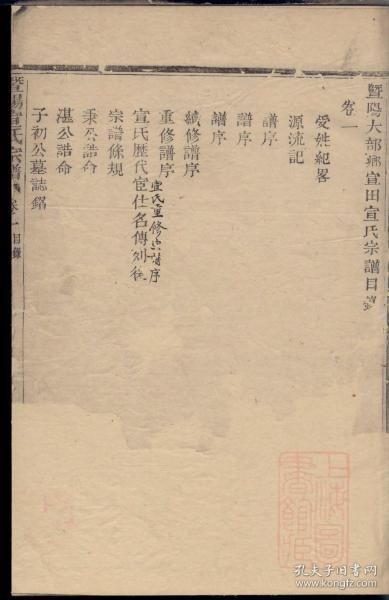 暨陽大部鄉宣田宣氏宗譜目錄
卷一
受姓紀畧
源流記
譜序
譜序
譜序
續修譜序
重修譜序
宣氏重修宗譜序
宣氏歷代宦仕名傳列後
宗譜條規
秉公誥命
湛公誥命
子初公墓誌銘
暨陽宣氏宗譜 卷一 目錄
上海圖書館藏
孔夫子旧书网